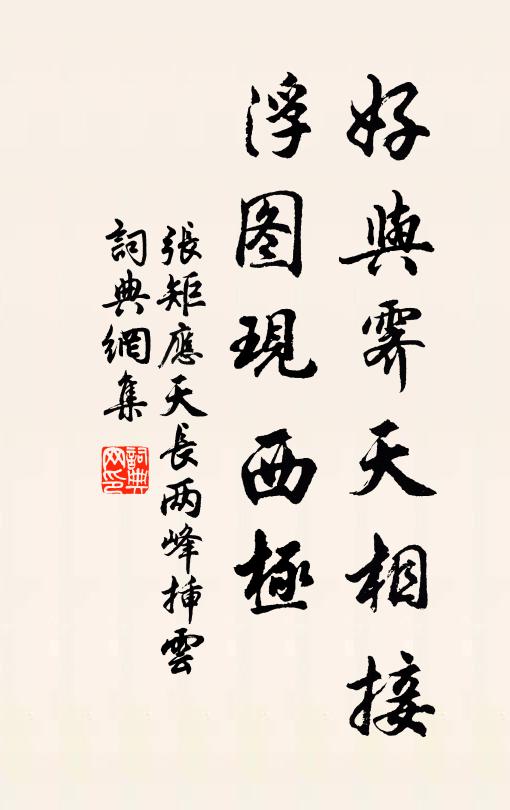 好與霽天相接
浮图現西極
張矩應天長两峰挿雲
詞典網集
詞典
网印